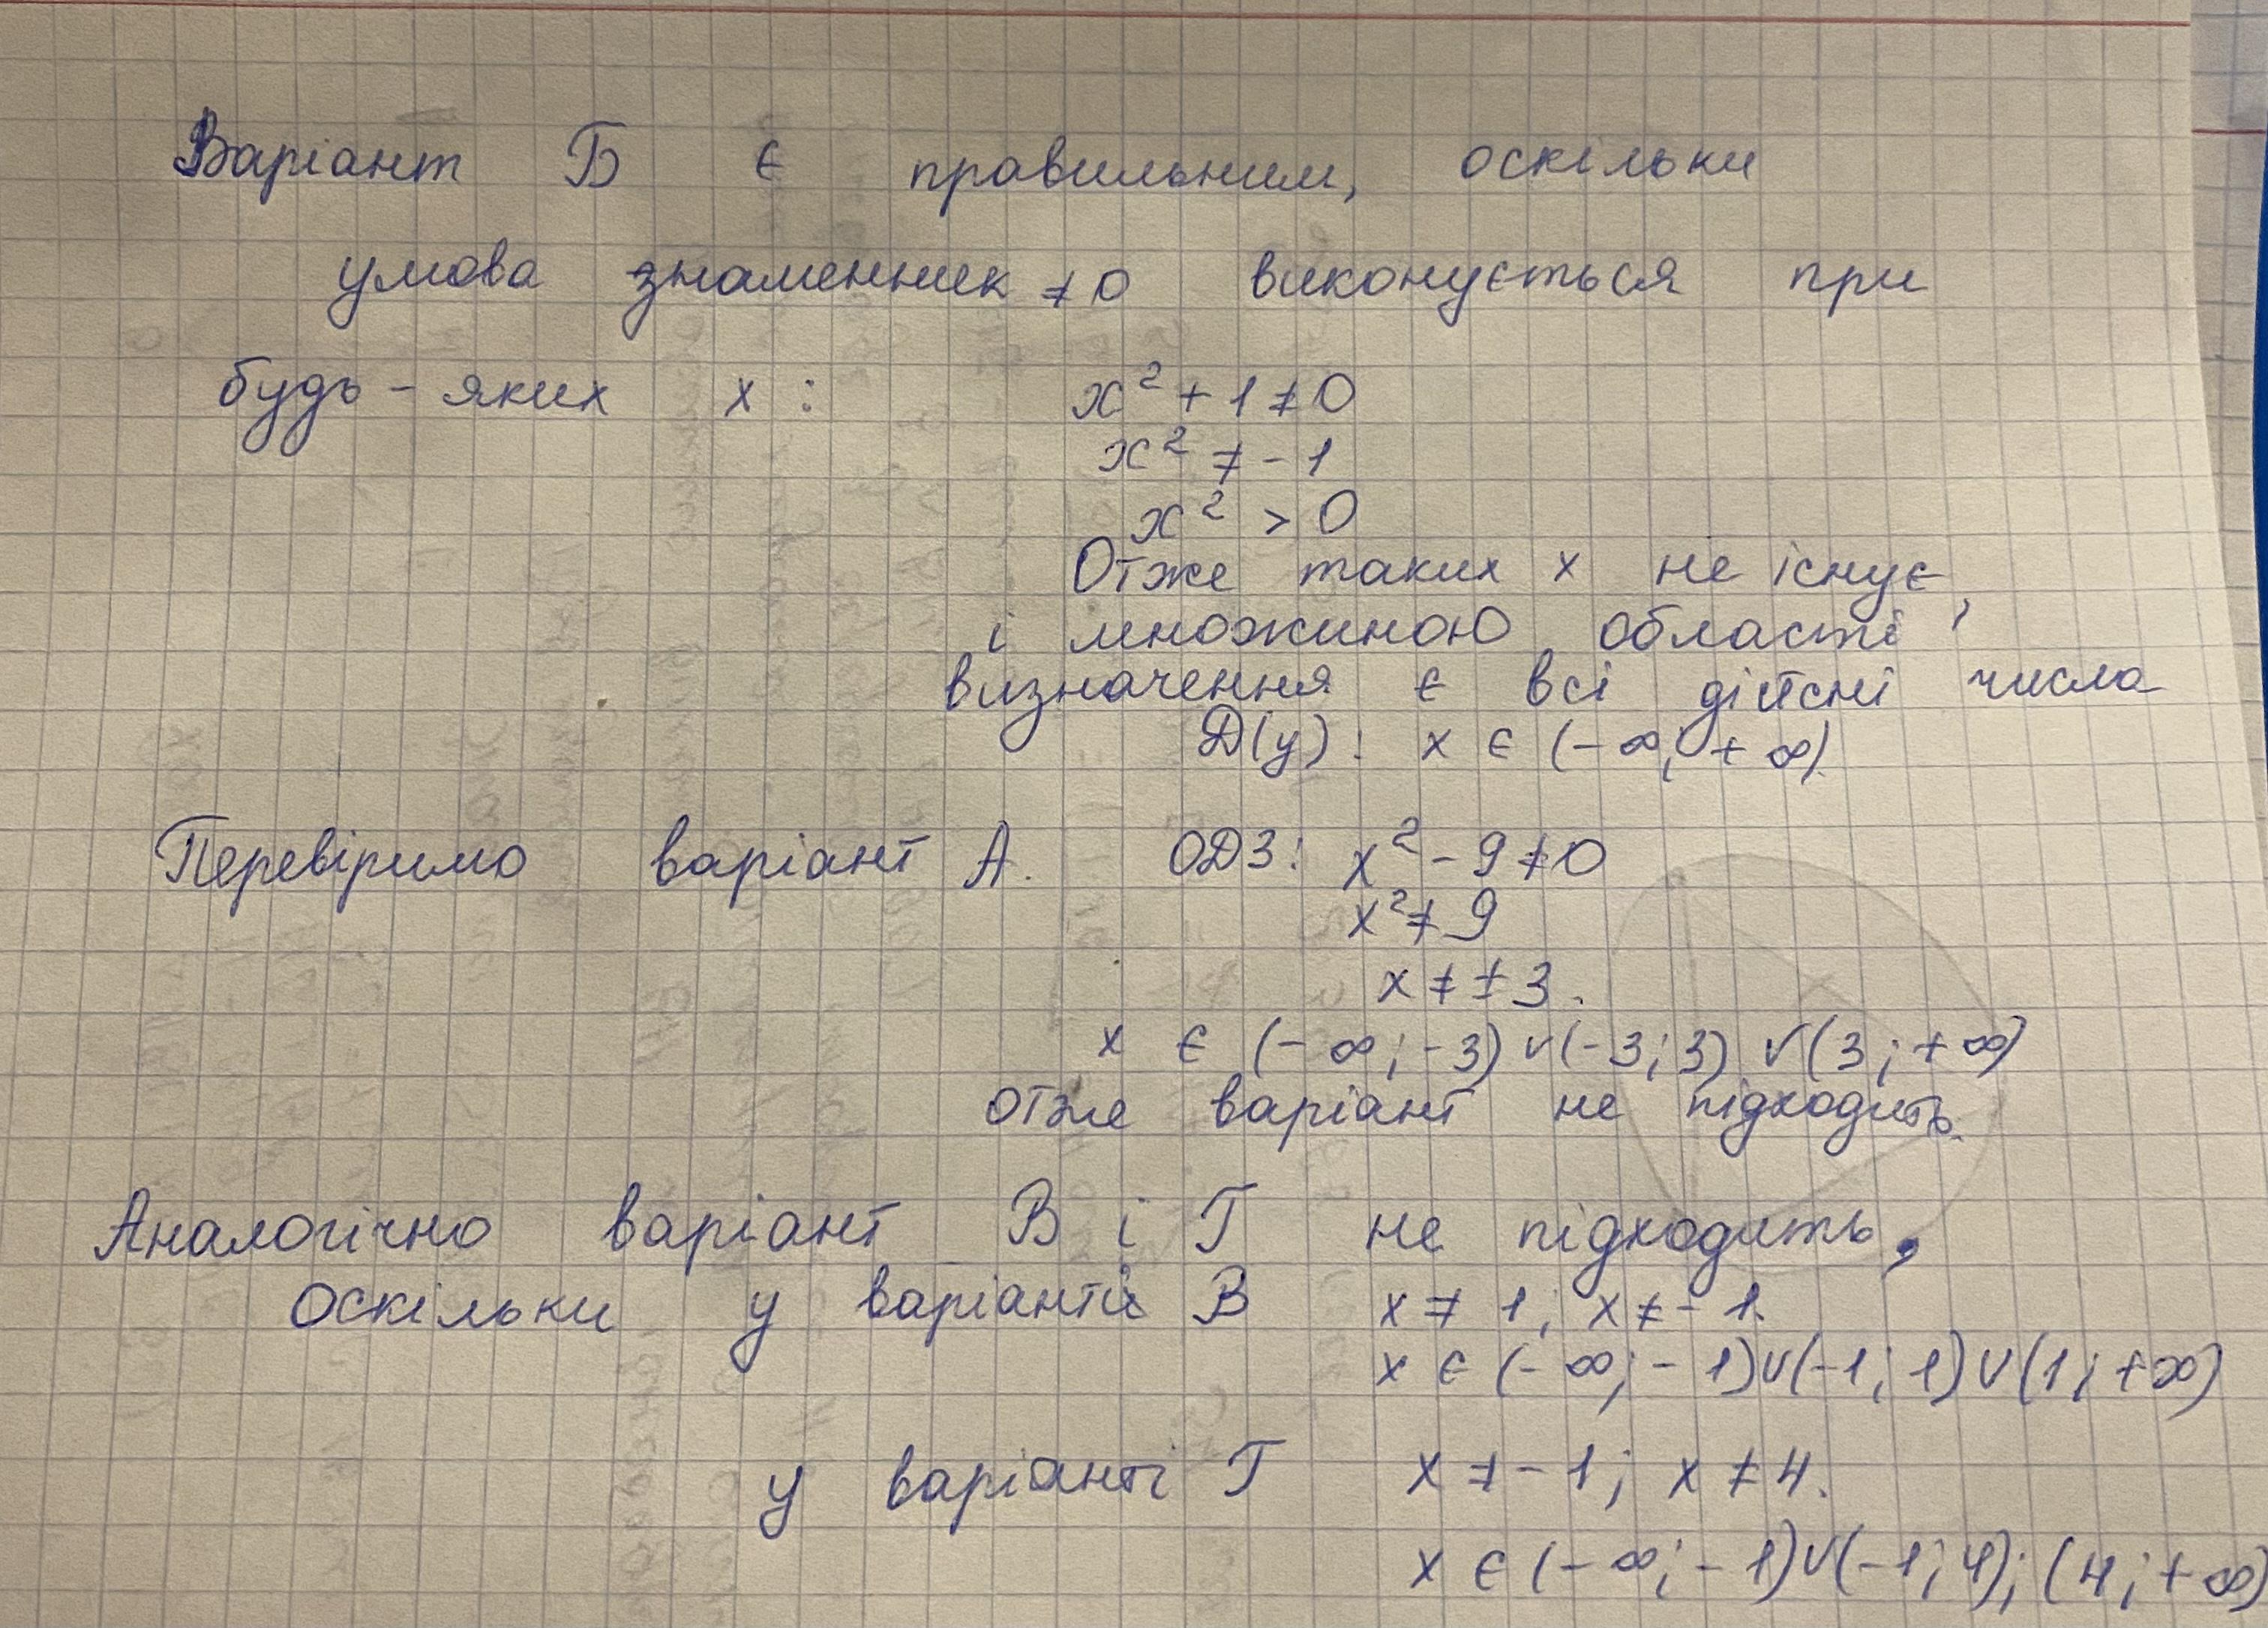 Варіант Б є правильним, оскільки
умова знаменник ≠ 0 виконується при
будь-яких х : x² + 1 ≠ 0
x² ≠ - 1
x² > 0
Отже таких х не існує,
і множиною області
визначення є всі дійсні числа
D(y): x є (- ∞; + ∞).
Перевіримо варіант А. ОДЗ: x² - 9 ≠ 0
x² ≠ 9
x ≠ ± 3.
x є (- ∞; - 3) ∨ (- 3; 3) ∨ (3; + ∞)
отже варіант не підходить.
Аналогічно варіант В і Г не підходить,
оскільки у варіанті В x ≠ 1; x ≠ - 1.
x є (- ∞; - 1) ∪ (-1; 1) ∪ (1; + ∞)
у варіанті Г x ≠ - 1; x ≠ 4.
x є (- ∞; - 1) ∨ (-1; 4); (4; + ∞)